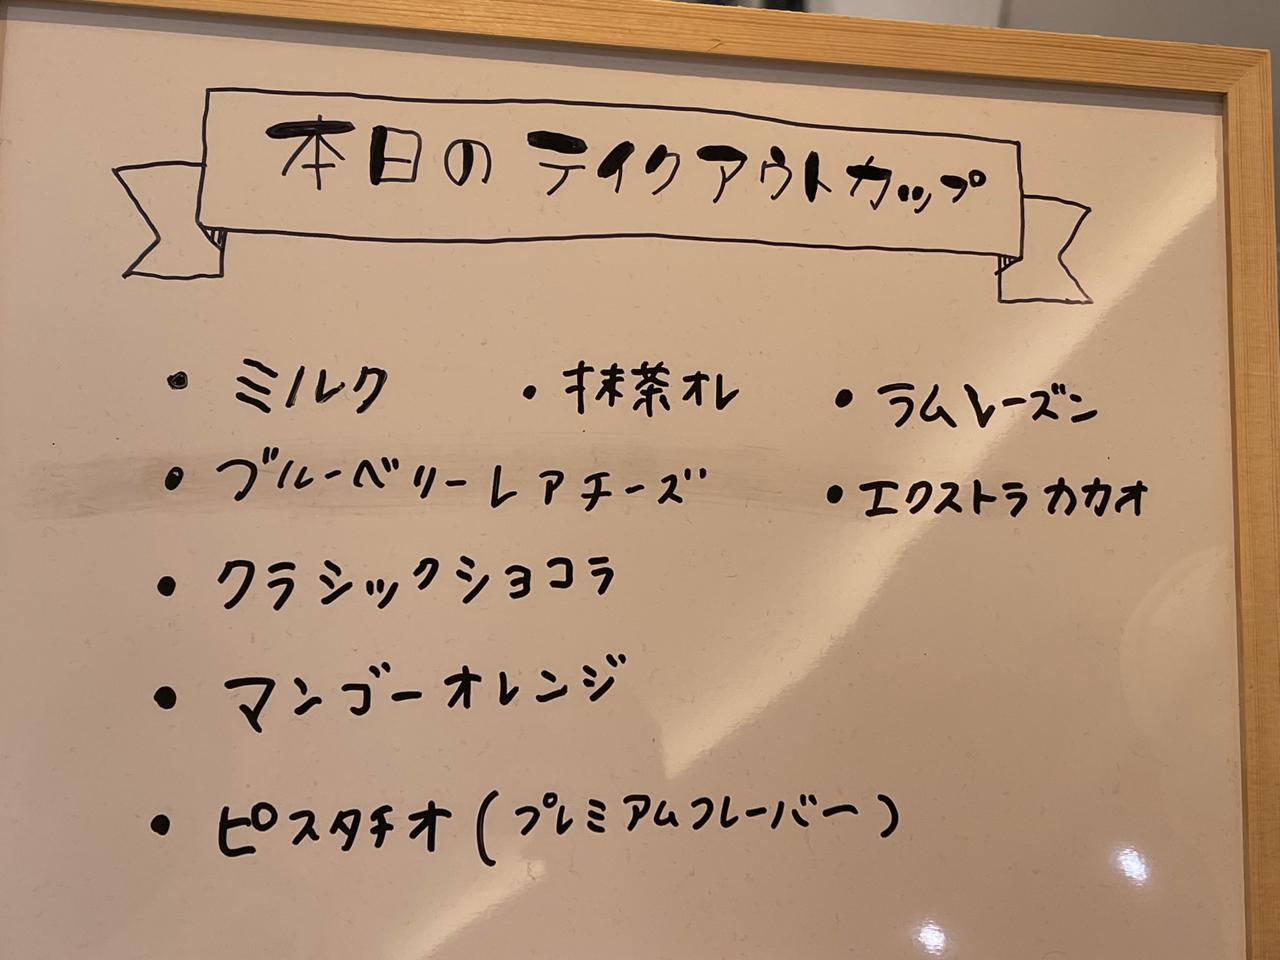 本日のテイクアウトカップ
・ミルク ・抹茶オレ ・ラムレーズン
・ブルーベリーレアチーズ ・エクストラカカオ
・クラシックショコラ
・マンゴーオレンジ
・ピスタチオ(プレミアムフレーバー)